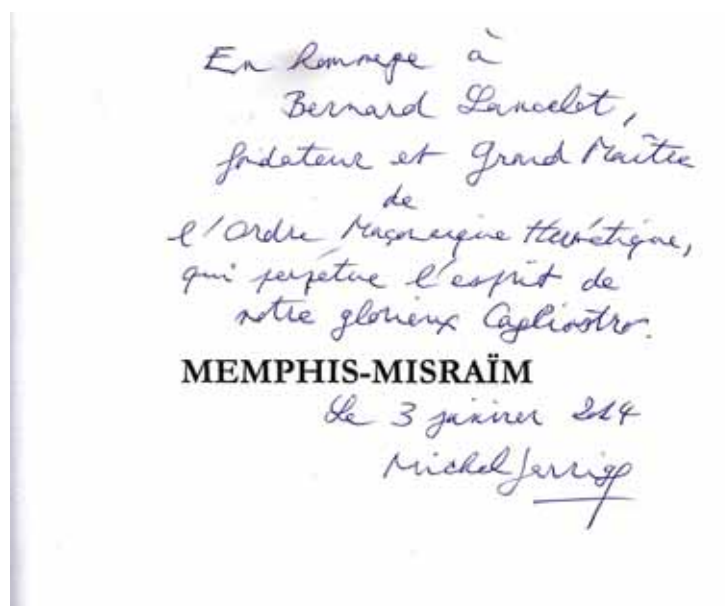 En hommage à
Bernard Lancelot,
fondateur et Grand Maître
de
l'Ordre Maçonnique Hermétique,
qui perpétue l'esprit de
notre glorieux Cagliostro.
MEMPHIS-MISRAÏM
Le 3 janvier 2014
Michel